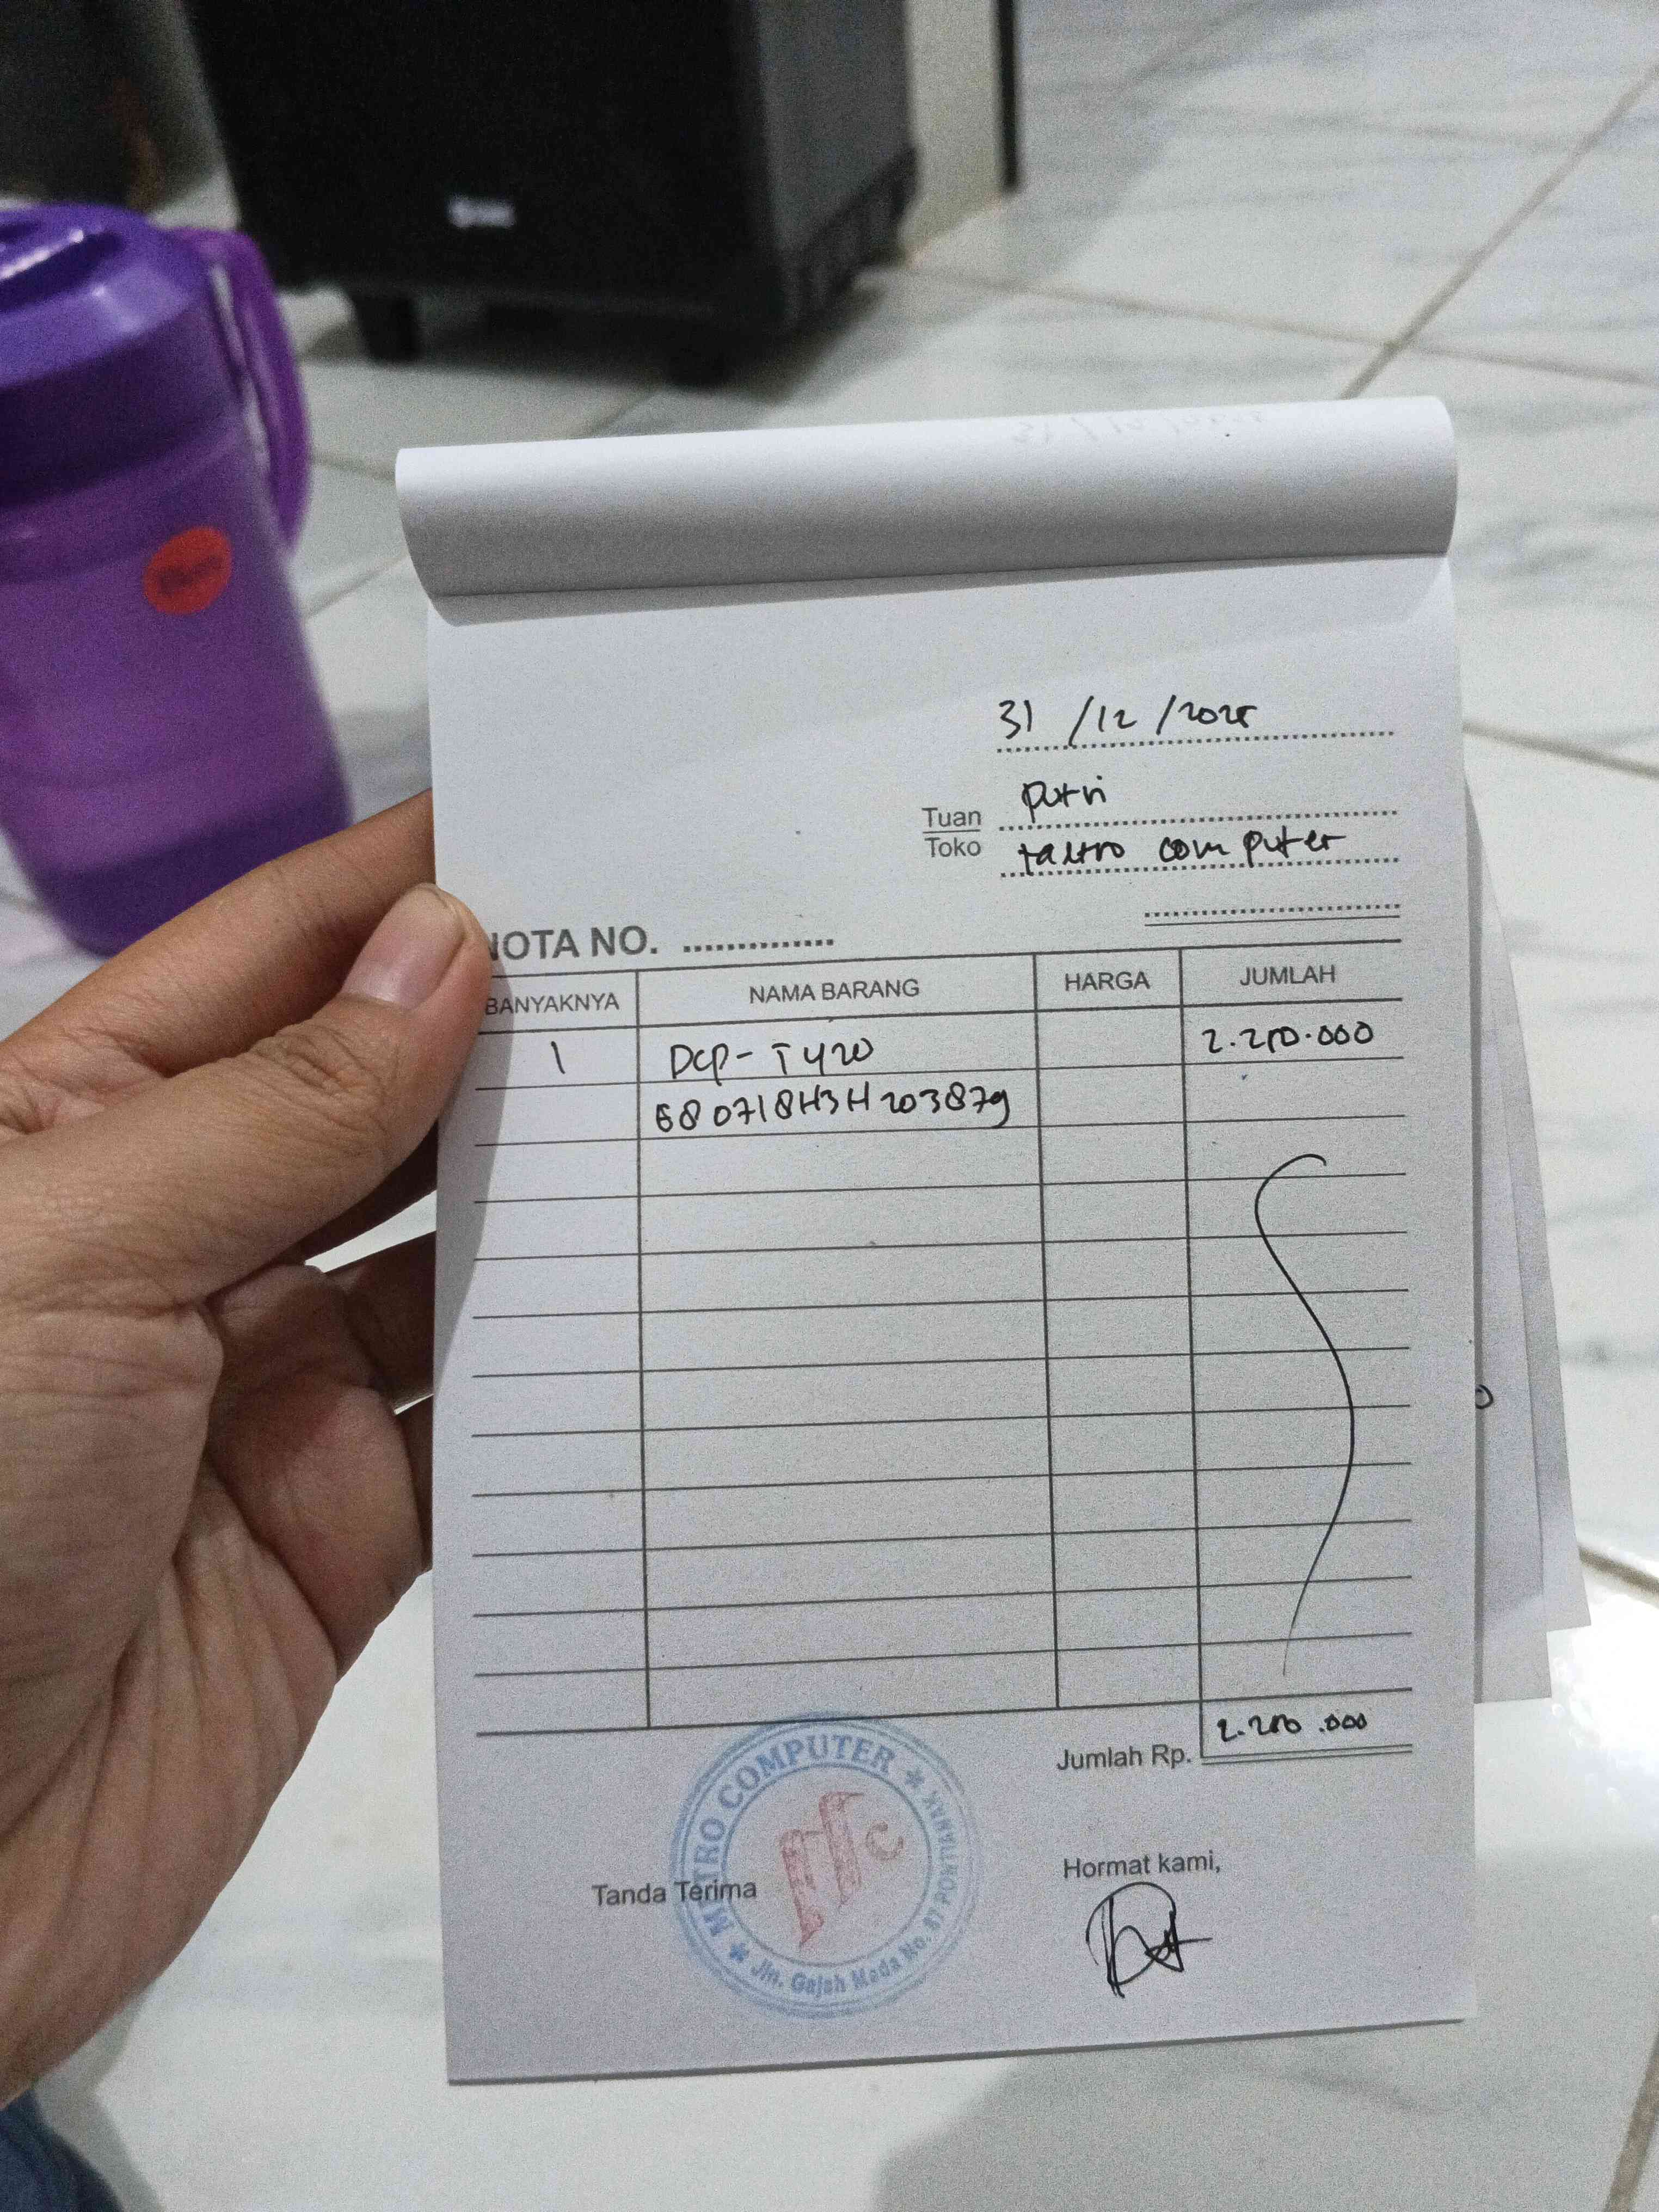 31 /12 /2025
Tuan Putri
Toko tastro computer
NOTA NO. ..............
BANYAKNYA NAMA BARANG HARGA JUMLAH
1 DCP-T420 2.250.000
E80718H3H203879
Jumlah Rp. 2.250.000
METRO COMPUTER
Jln. Gajah Mada No. 87 PONTIANAK
MC
Tanda Terima
Hormat kami,